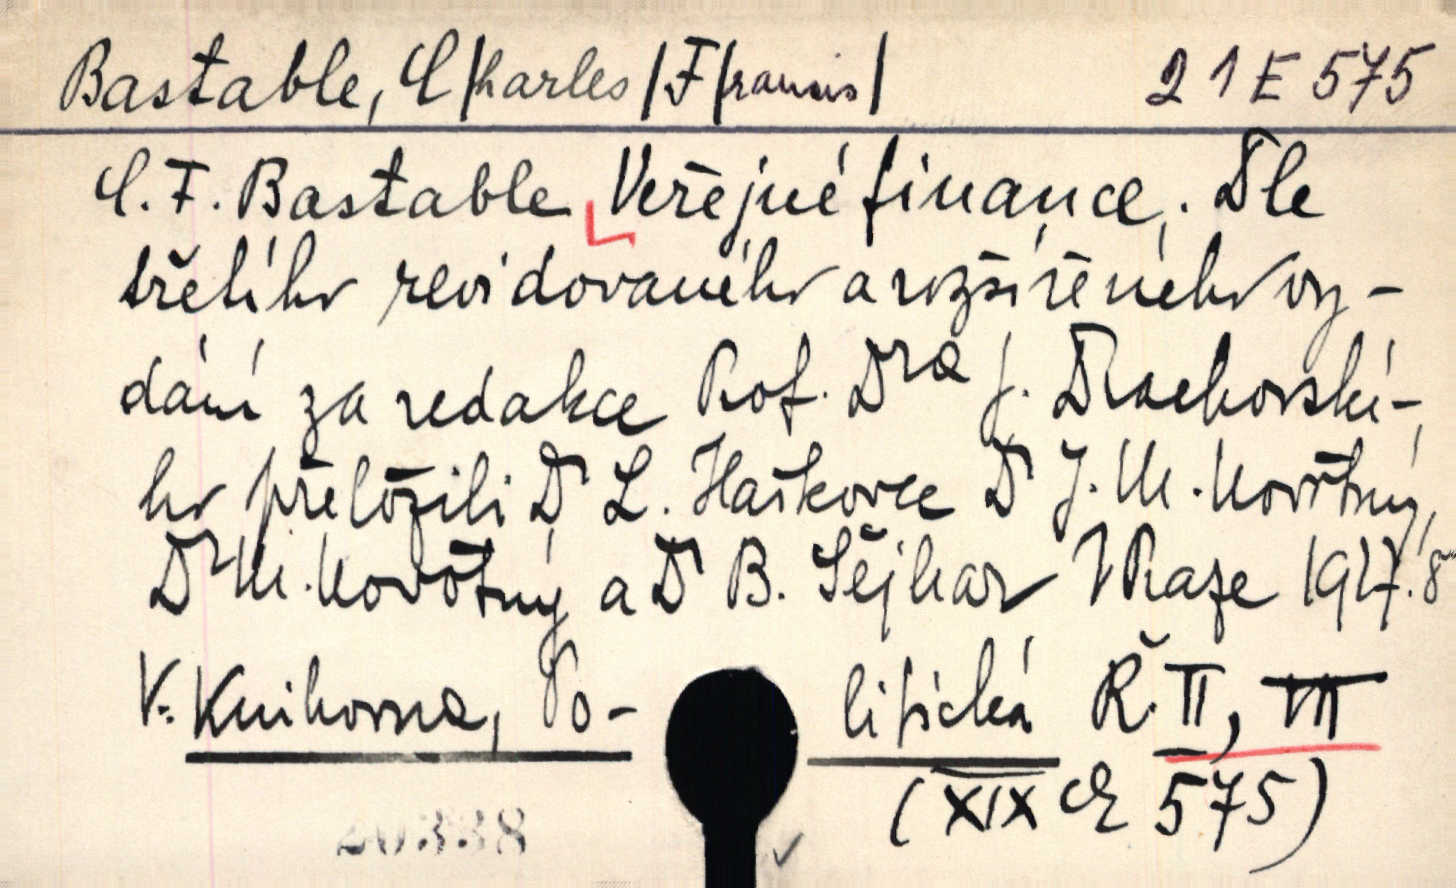 Bastable, C/harles/F/rancis/ 21 E 575
C. F. Bastable Veřejné finance. Dle
třetího revidovaného a rozšířeného vy-
dání za redakce Prof. Dra J. Drachovské-
ho přeložili Dr L. Haškovec Dr J. M. Novotný,
Dr M. Novotný a Dr B. Sejkar V Praze 1927. 8°
V. Knihovna, Po- litická Ř. II, VII
(XIX 575)
20338